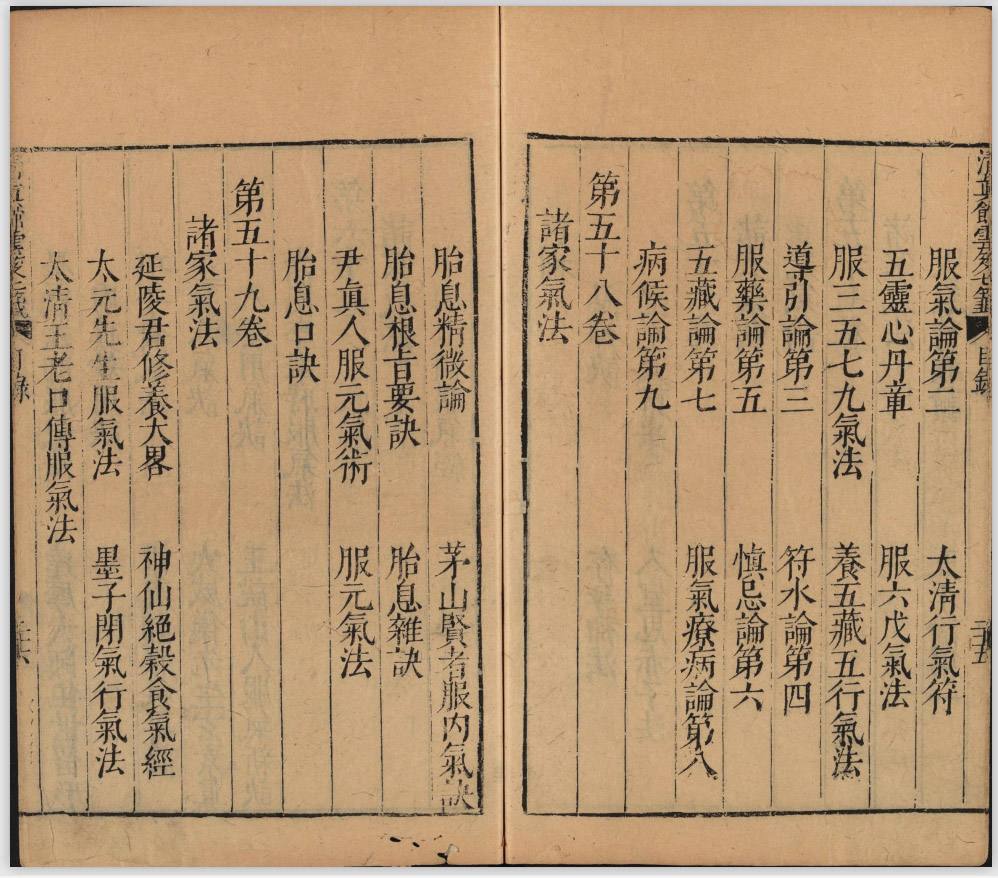 清真館雲笈七籤 目錄 三五
服氣論第二 太清行氣符
五靈心丹章 服六戊氣法
服三五七九氣法 養五藏五行氣法
導引論第三 符水論第四
服藥論第五 慎忌論第六
五藏論第七 服氣療病論第八
病候論第九
第五十八卷
諸家氣法
胎息精微論 茅山賢者服內氣訣
胎息根旨要訣 胎息雜訣
尹眞人服元氣術 服元氣法
胎息口訣
第五十九卷
諸家氣法
延陵君修養大畧 神仙絕穀食氣經
太元先生服氣法 墨子閉氣行氣法
太清王老口傳服氣法